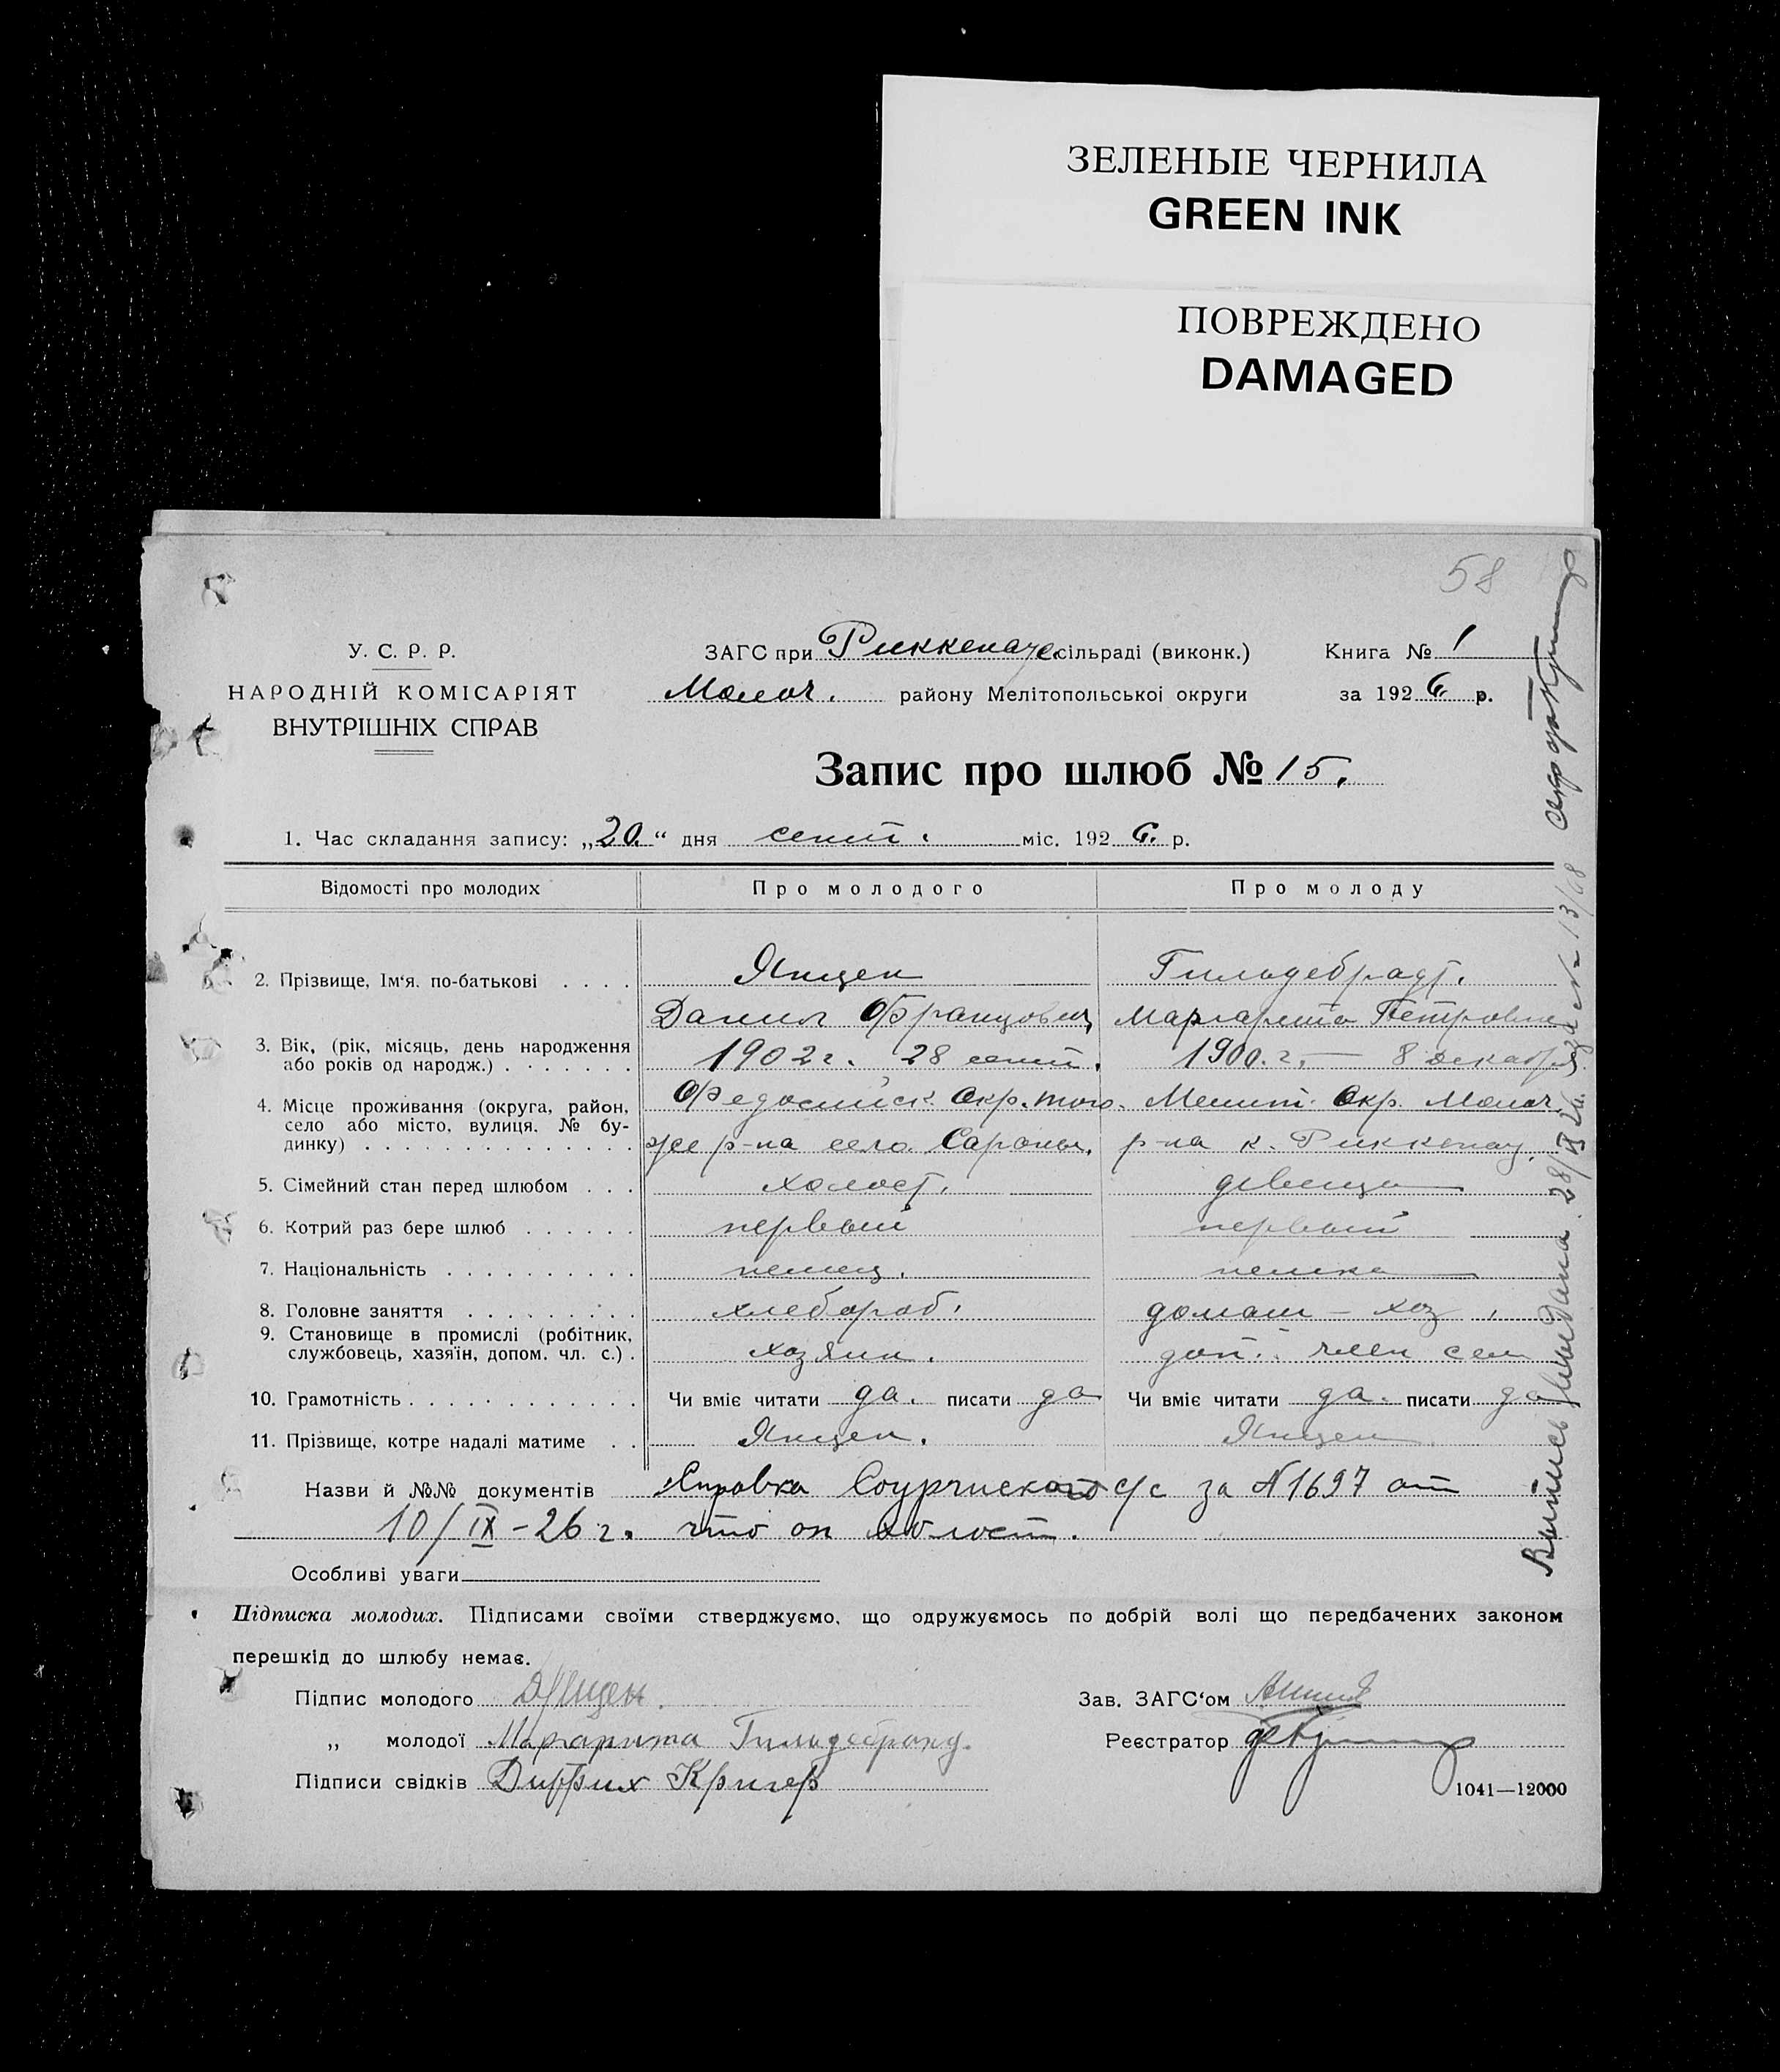 ЗЕЛЕНЫЕ ЧЕРНИЛА
GREEN INK
ПОВРЕЖДЕНО
DAMAGED
58
У. С. Р. Р.
НАРОДНІЙ КОМІСАРІЯТ
ВНУТРІШНІХ СПРАВ
ЗАГС при Риккенаус. сільраді (виконк.)
Молоч. району Мелітопольської округи
Книга № 1
за 1926 р.
Запис про шлюб № 15.
1. Час складання запису: „20“ дня сент. міс. 1926. р.
Відомості про молодих Про молодого Про молоду
2. Прізвище, Ім‘я. по-батькові . . . . Янцен Гильдебрадт.
Данил Францович Маргарита Петровна
3. Вік, (рік, місяць, день народження
або років од народж.) . . . . . . . 1902 г. 28 сент. 1900. г. — 8 декабря
4. Місце проживання (округа, район,
село або місто, вулиця. № бу-
динку) . . . . . . . . . . . . . .
Феодосийск. Окр. того- Мелит. Окр. Молоч.
же р-на село Сароны. р-на к. Риккенау.
5. Сімейний стан перед шлюбом . . . холост. девица
6. Котрий раз бере шлюб . . . . . . первый первый
7. Національність . . . . . . . . . . немец. немка
8. Головне заняття . . . . . . . . . хлебороб. домаш — хоз.
9. Становище в промислі (робітник,
службовець, хазяїн, допом. чл. с.) . хозяин. доп. член сем
10. Грамотність . . . . . . . . . . . . Чи вміє читати да. писати да Чи вміє читати да. писати да
11. Прізвище, котре надалі матиме . . Янцен. Янцен
Назви й №№ документів Справка с/с за N 1697 от
10/IX-26 г. что он холост.
Особливі уваги
Підписка молодих. Підписами своїми стверджуємо, що одружуємось по добрій волі що передбачених законом
перешкід до шлюбу немає.
Підпис молодого ДЯнцен.
„ молодої Маргарита Гильдебранд.
Підписи свідків Дитрих Кригер
Зав. ЗАГС‘ом
Реєстратор
1041—12000
Выпись выдана 28/IX 26 за № 13/68